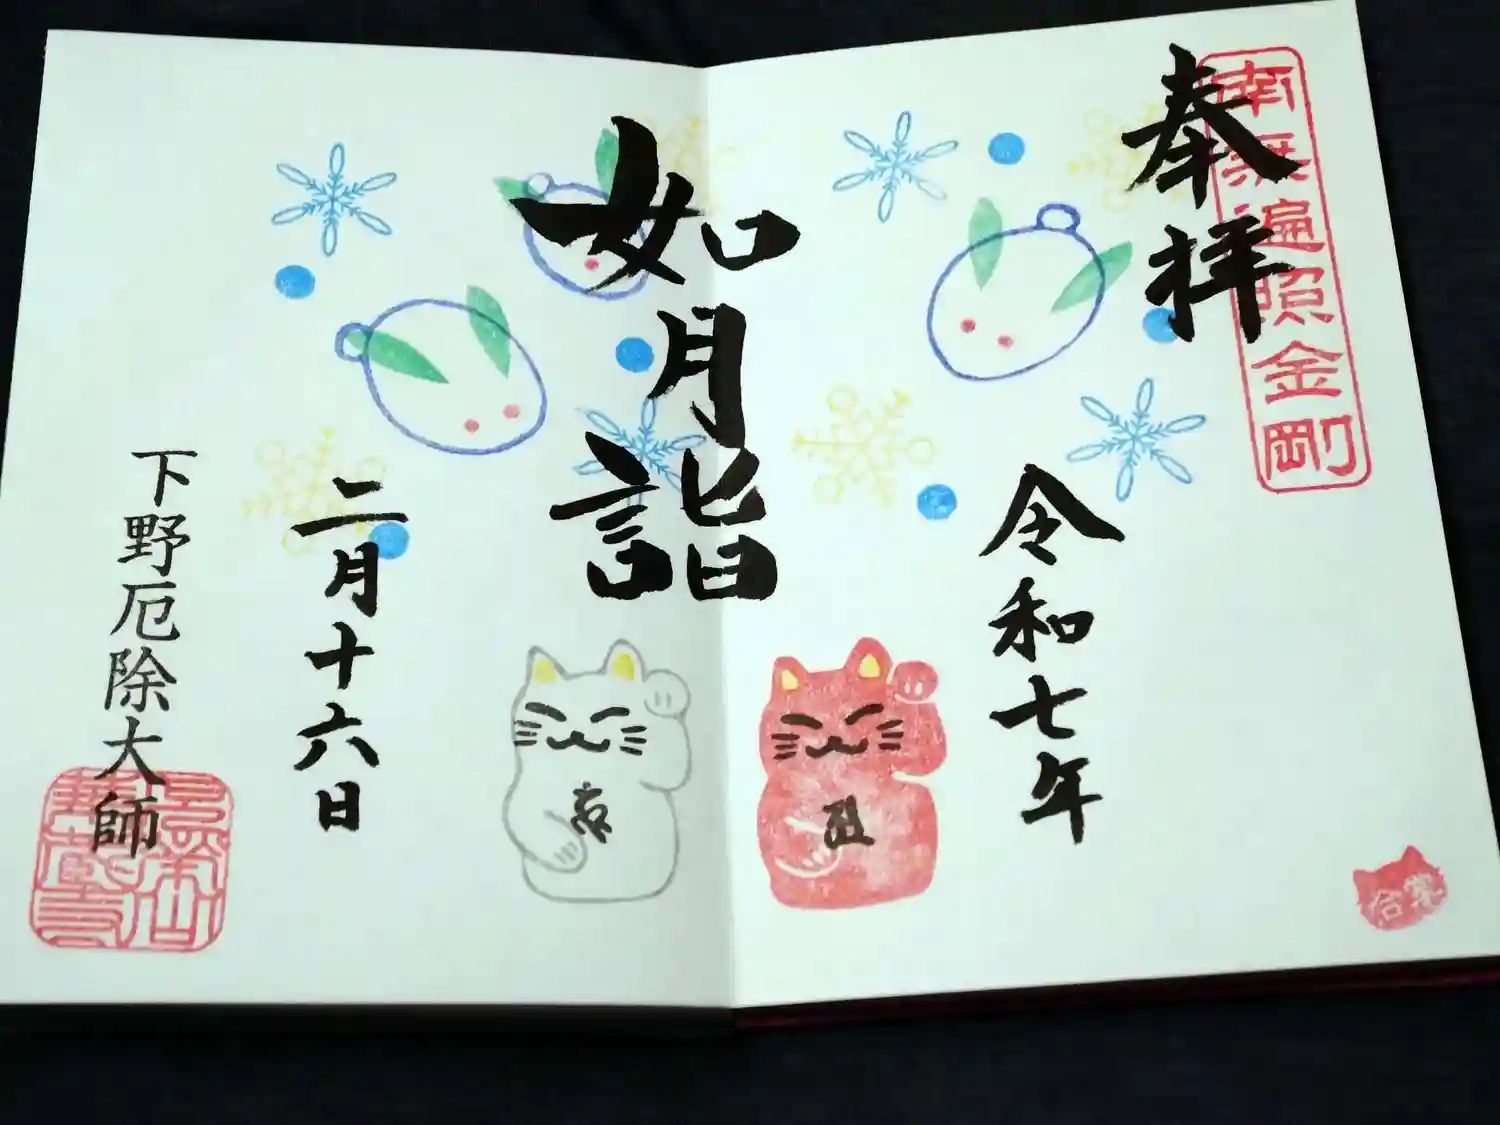 奉拝
南無遍照金剛
令和七年
如月詣
二月十六日
下野厄除大師
合掌